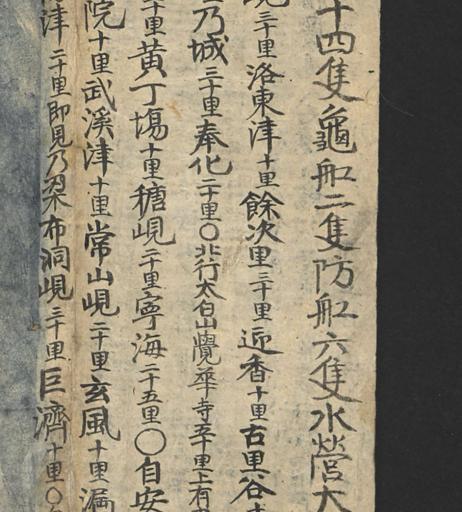 十四隻龜舡二隻防舡六隻水營大
峴三十里洛東津十里餘次里三十里迎香十里古里谷
乃城三十里奉化二十里〇北行太白山覺華寺五十里上有
十里黃丁場十里糖峴二十里寧海二十五里〇自安
院十里武溪津十里常山峴二十里玄風十里漏
津二十里卽見乃梁布洞峴三十里巨濟十里〇